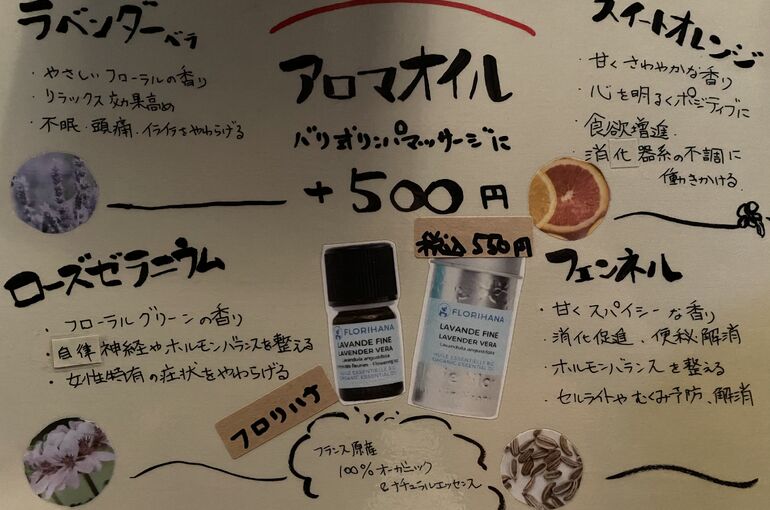 ラベンダーベラ
・やさしいフローラルの香り
・リラックス効果高め
・不眠・頭痛・イライラをやわらげる
アロマオイル
バリ式リンパマッサージに
+500円
税込550円
スイートオレンジ
・甘くさわやかな香り
・心を明るくポジティブに
・食欲増進
・消化器系の不調に
働きかける
ローズゼラニウム
・フローラルグリーンの香り
・自律神経やホルモンバランスを整える
・女性特有の症状をやわらげる
FLORIHANA
LAVANDE FINE
LAVENDER VERA
Lavandula angustifolia
HUILE ESSENTIELLE BIO
ORGANIC ESSENTIAL OIL
FLORIHANA
LAVANDE FINE
LAVENDER VERA
Lavandula angustifolia
HUILE ESSENTIELLE BIO
ORGANIC ESSENTIAL OIL
フロリハナ
フランス原産
100%オーガニック
&ナチュラルエッセンス
フェンネル
・甘くスパイシーな香り
・消化促進、便秘解消
・ホルモンバランスを整える
・セルライトやむくみ予防、解消